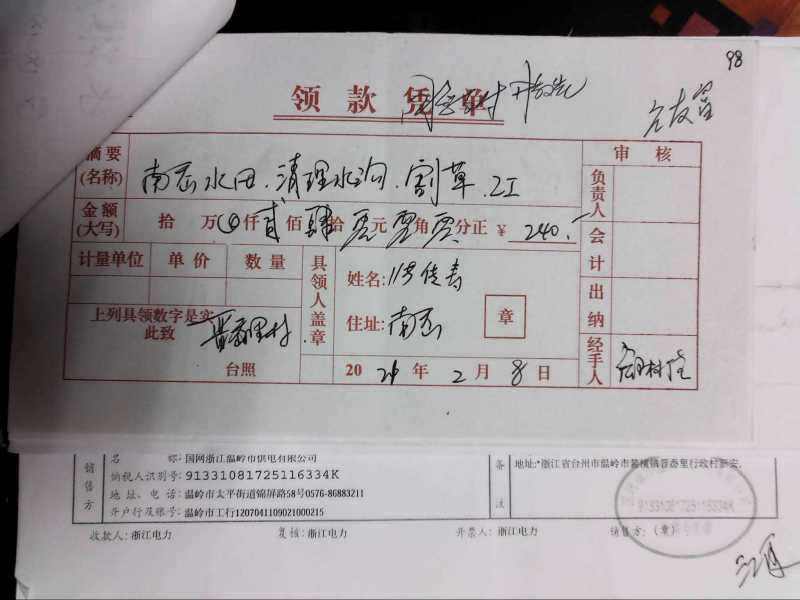 98
领款凭单
摘要
(名称)
南岙水田.清理水沟.割草.2工
审核
负责人
金额
(大写)
拾万仟贰佰肆拾零元零角零分正 ¥ 240.-
会计
计量单位 单价 数量
具领人盖章
姓名:
章
住址:南岙
出纳
上列具领数字是实
此致
台照
2021年2月8日
经手人
销售方
名称:国网浙江温岭市供电有限公司
纳税人识别号:91331081725116334K
地址、电话:温岭市太平街道锦屏路58号0576-86883211
开户行及账号:温岭市工行1207041109021000215
备注
地址:*浙江省台州市温岭市箬横镇晋岙里行政村新安.
91331081725116334K
收款人:浙江电力 复核:浙江电力 开票人:浙江电力 销售方:(章)